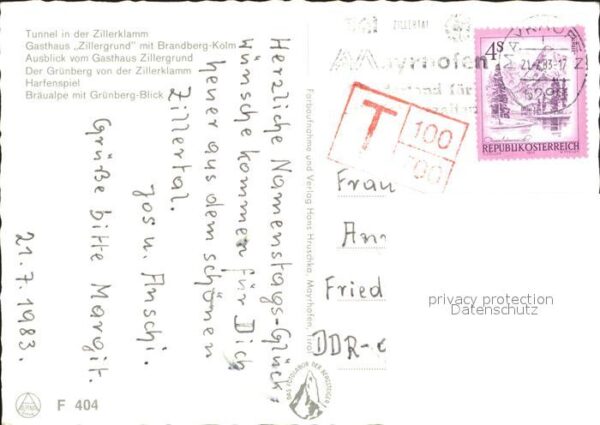 Tunnel in der Zillerklamm
Gasthaus „Zillergrund" mit Brandberg-Kolm
Ausblick vom Gasthaus Zillergrund
Der Grünberg von der Zillerklamm
Harfenspiel
Bräualpe mit Grünberg-Blick
Herzliche Namenstags-Glück,
wünsche kommen für Dich
heuer aus dem schönen
Zillertal.
Jos u. Anschi.
Grüße bitte Margit.
21.7.1983.
F 404
Farbaufnahme und Verlag Hans Hruschka, Mayrhofen, Tirol
DAS FOTOLABOR DER BERGSTEIGER
ZILLERTAL
Mayrhofen
21.7.83-17
6290
4 S
REPUBLIK ÖSTERREICH
T
100
Frau
Ann
Fried
DDR-
privacy protection
Datenschutz